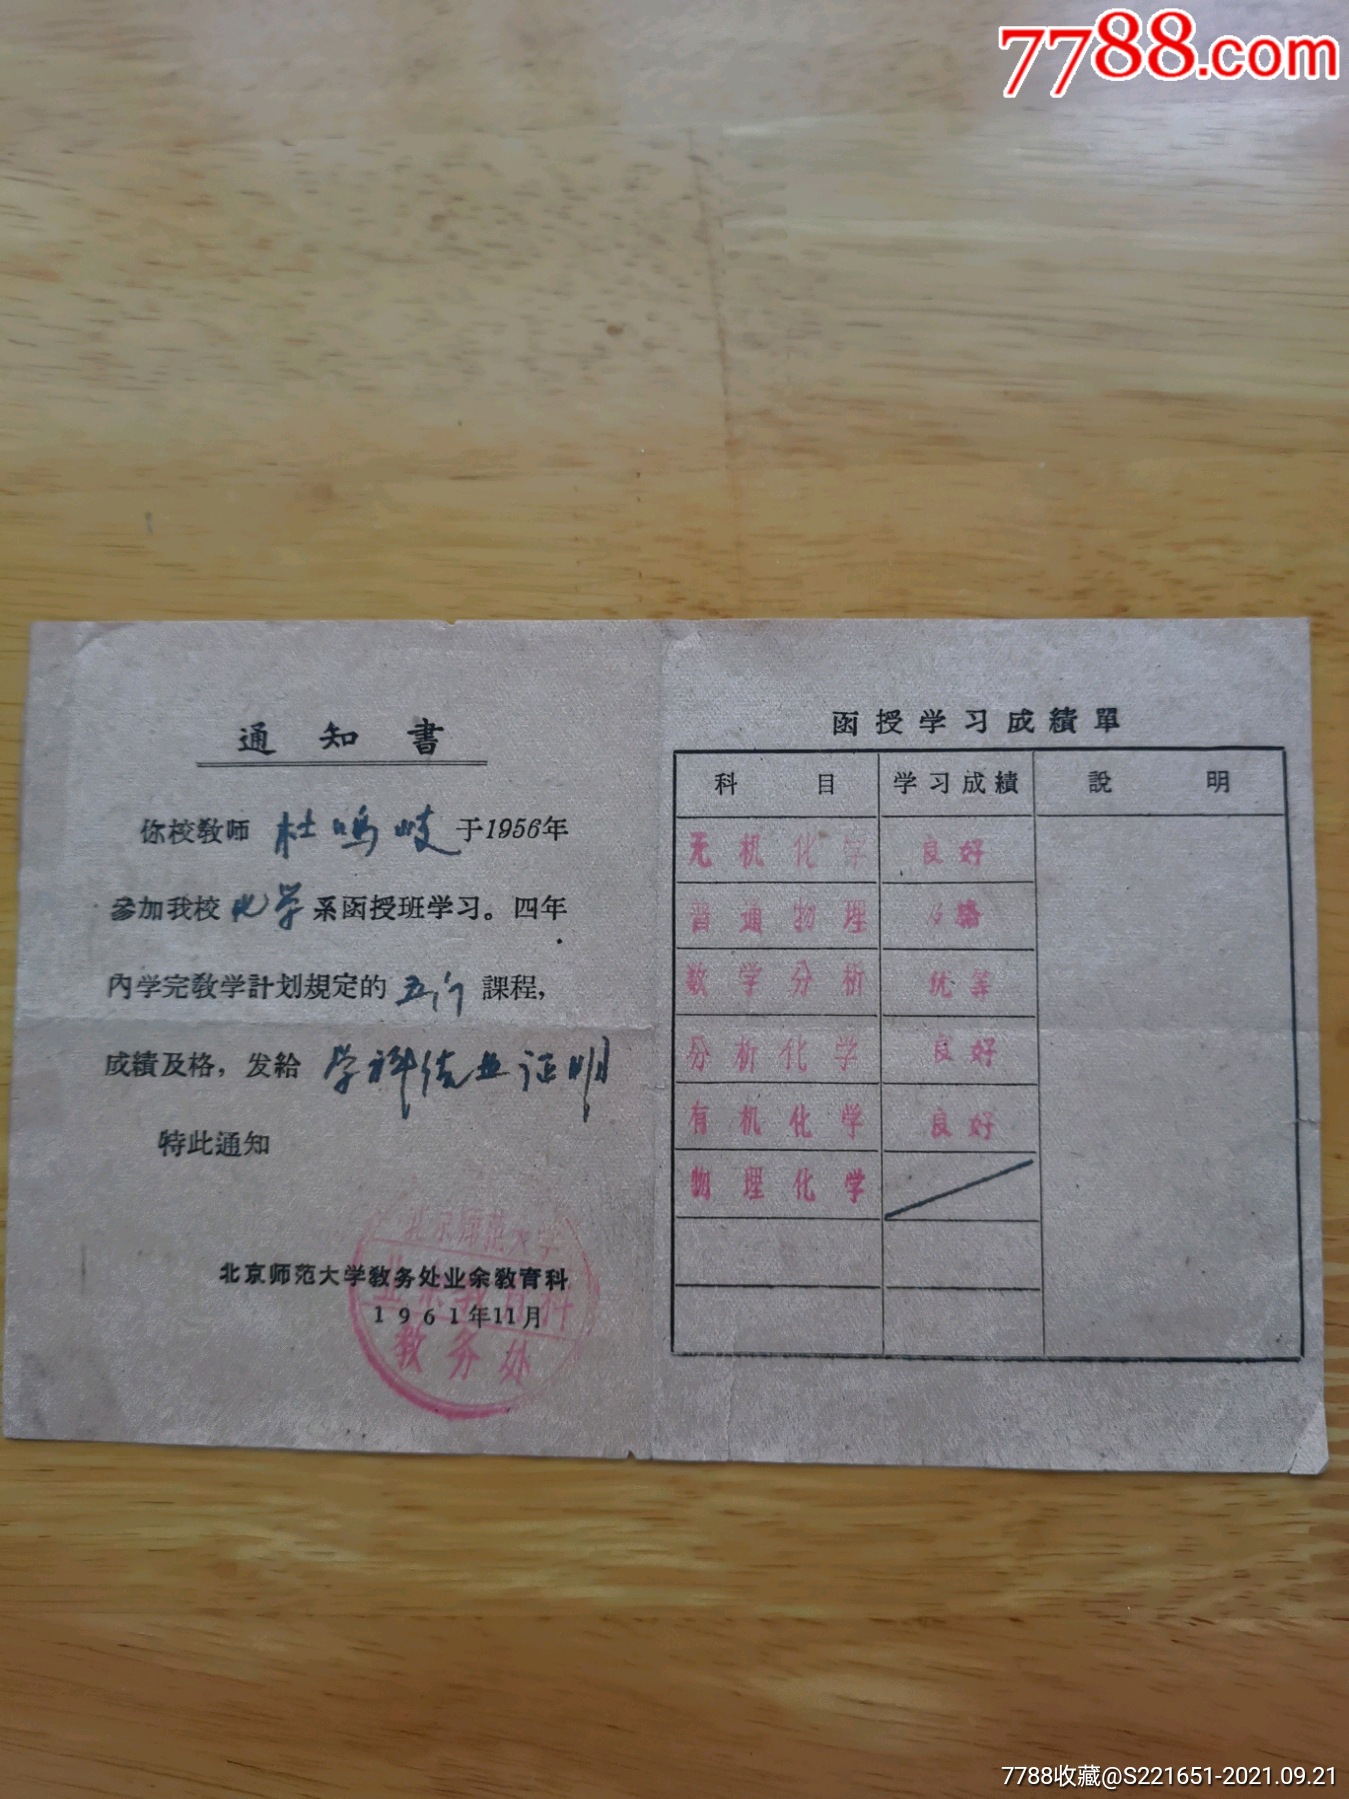 7788.com
通知書
你校教师 杜鸣岐 于1956年
參加我校 化学 系函授班学习。四年
內学完教学計划規定的 五门 課程，
成績及格，发給 学科结业证明
特此通知
北京师范大学教务处业余教育科
1961年11月
北京师范大学
业余教育科
教务处
函授学习成績單
科目 学习成績 說明
无机化学 良好
普通物理 及格
数学分析 优等
分析化学 良好
有机化学 良好
物理化学
7788收藏@S221651-2021.09.21